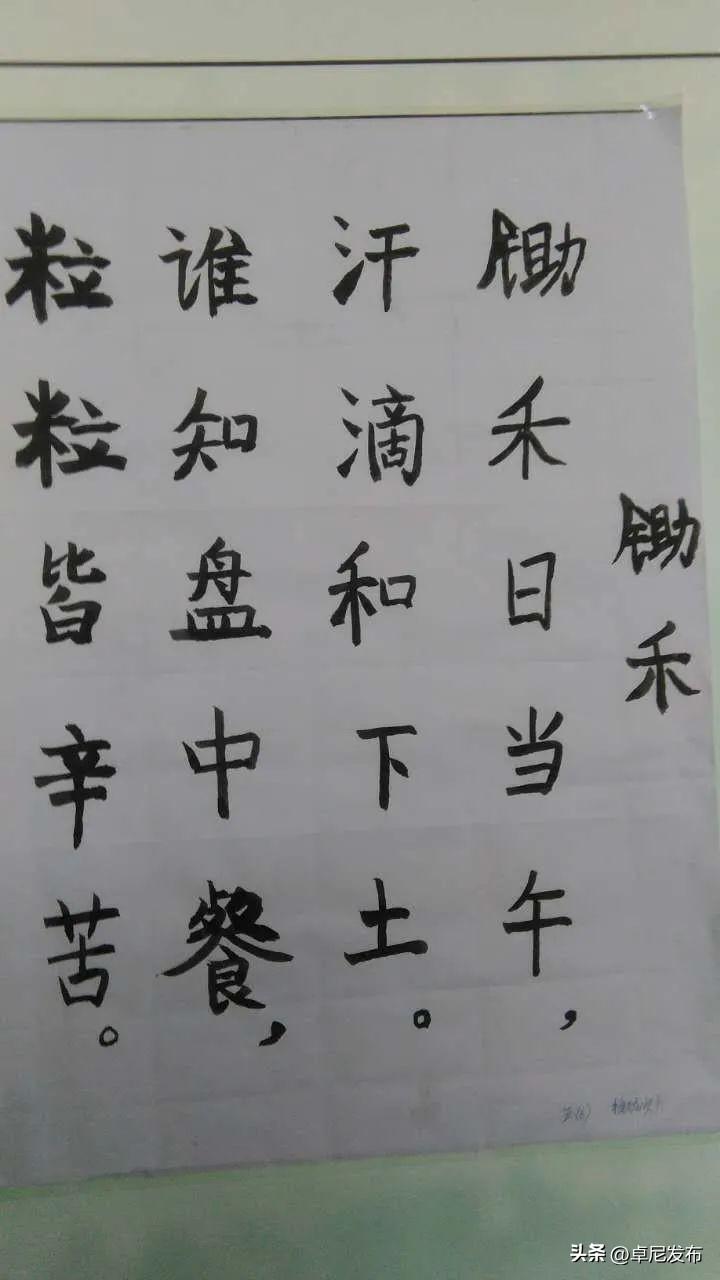 锄禾
锄禾日当午，
汗滴和下土。
谁知盘中餐，
粒粒皆辛苦。
头条 @卓尼发布